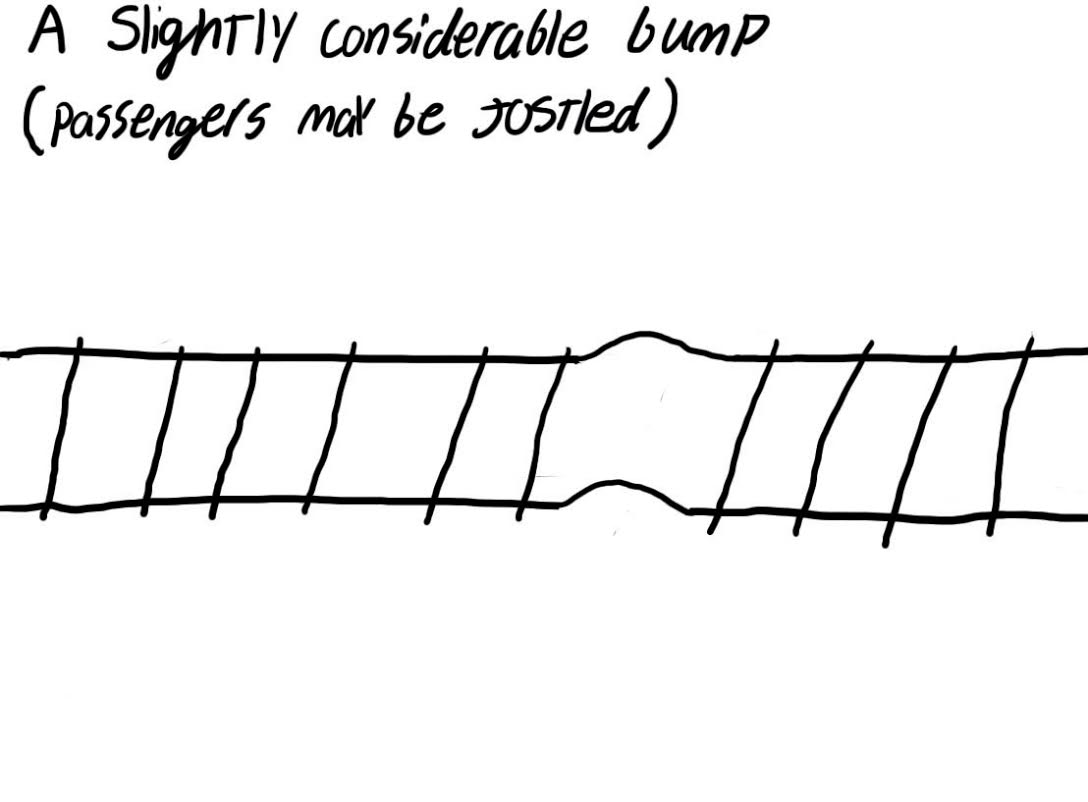 A Slightly considerable bump
(passengers may be jostled)